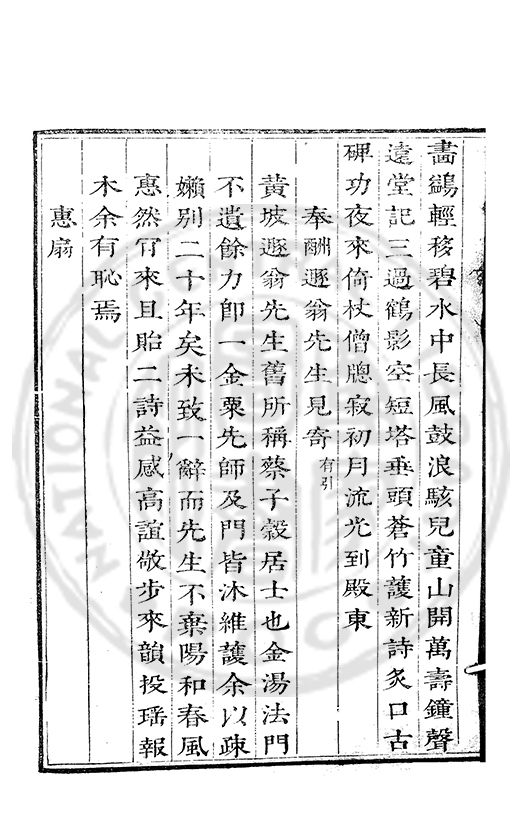 畵鷁輕移碧水中長風鼓浪駭兒童山開萬壽鐘聲
遠堂記三過鶴影空短塔垂頭蒼竹護新詩炙口古
碑功夜來倚杖僧牕寂初月流光到殿東
奉酬遯翁先生見寄有引
黃坡遯翁先生舊所稱蔡子穀居士也金湯法門
不遺餘力卽一金粟先師及門皆沐維護余以疎
嬾別二十年矣未致一辭而先生不棄陽和春風
惠然肎來且貽二詩益感高誼敬步來韻投瑶報
木余有恥焉
惠扇